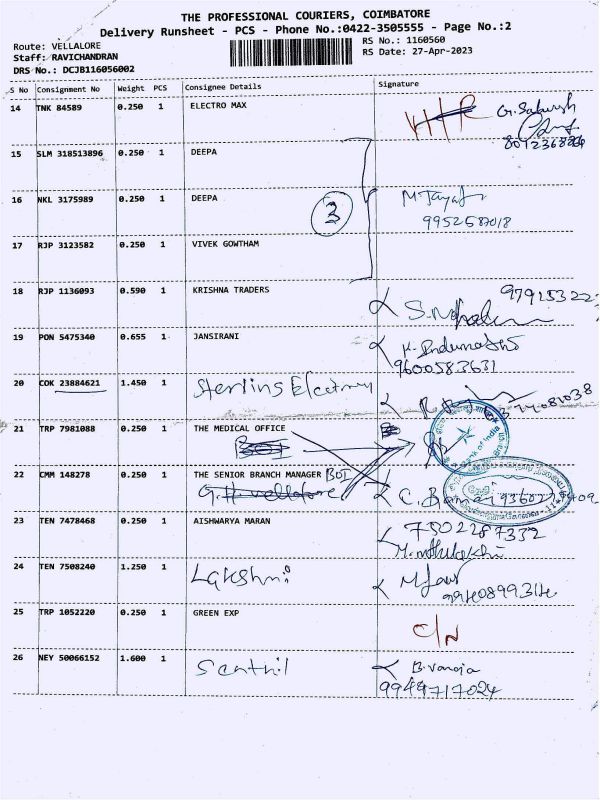 THE PROFESSIONAL COURIERS, COIMBATORE
Delivery Runsheet - PCS - Phone No.:0422-3505555 - Page No.:2
Route: VELLALORE
RS No.: 1160560
Staff: RAVICHANDRAN
RS Date: 27-Apr-2023
DRS No.: DCJB116056002
S No Consignment No Weight PCS Consignee Details Signature
14 TNK 84589 0.250 1 ELECTRO MAX
15 SLM 318513896 0.250 1 DEEPA
16 NKL 3175989 0.250 1 DEEPA
3
9952587018
17 RJP 3123582 0.250 1 VIVEK GOWTHAM
18 RJP 1136093 0.590 1 KRISHNA TRADERS
97915322
19 PON 5475340 0.655 1 JANSIRANI
9600583631
20 COK 23884621 1.450 1
21 TRP 7981088 0.250 1 THE MEDICAL OFFICE
22 CMM 148278 0.250 1 THE SENIOR BRANCH MANAGER BOI
23 TEN 7478468 0.250 1 AISHWARYA MARAN
7502287332
24 TEN 7508240 1.250 1 Lakshmi
25 TRP 1052220 0.250 1 GREEN EXP
C/N
26 NEY 50066152 1.600 1 Senthil
B. Vanaja
9944717024